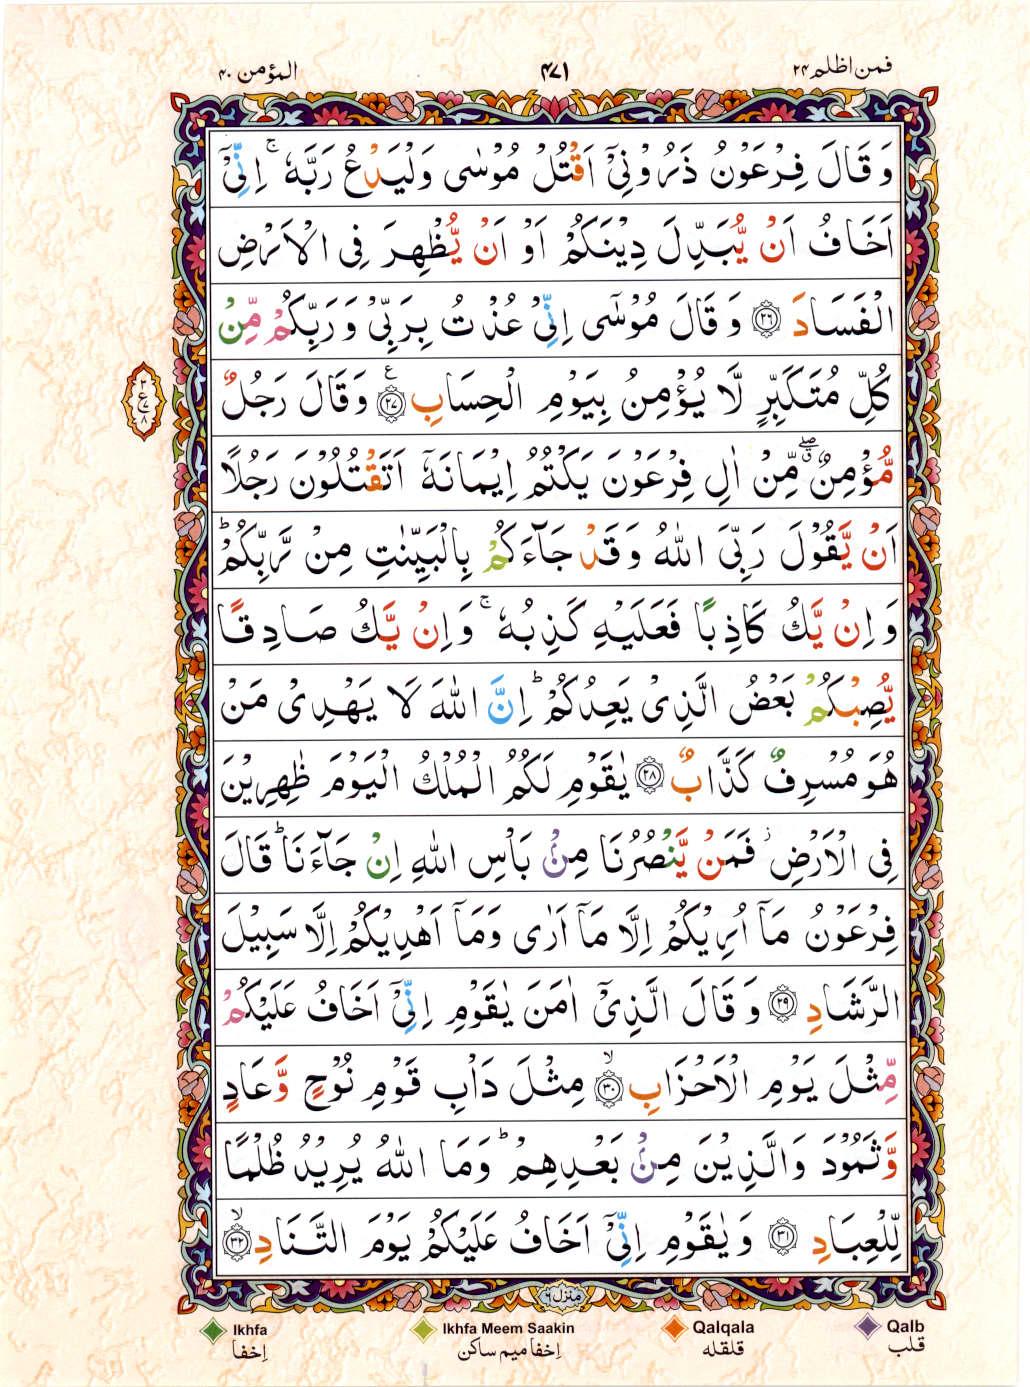 المؤمن ۴۰
۴۷۱
فمن اظلم ۲۴
وَ قَالَ فِرْعَوْنُ ذَرُوْنِیْۤ اَقْتُلْ مُوْسٰی وَلْیَدْعُ رَبَّهٗ ۚ اِنِّیْۤ
اَخَافُ اَنْ یُّبَدِّلَ دِیْنَكُمْ اَوْ اَنْ یُّظْهِرَ فِی الْاَرْضِ
الْفَسَادَ ﴿۲۶﴾ وَ قَالَ مُوْسٰۤی اِنِّیْ عُذْتُ بِرَبِّیْ وَ رَبِّكُمْ مِّنْ
كُلِّ مُتَكَبِّرٍ لَّا یُؤْمِنُ بِیَوْمِ الْحِسَابِ ﴿۲۷﴾ ع وَ قَالَ رَجُلٌ
مُّؤْمِنٌ ۖۗ مِّنْ اٰلِ فِرْعَوْنَ یَكْتُمُ اِیْمَانَهٗۤ اَتَقْتُلُوْنَ رَجُلًا
اَنْ یَّقُوْلَ رَبِّیَ اللّٰهُ وَ قَدْ جَآءَكُمْ بِالْبَیِّنٰتِ مِنْ رَّبِّكُمْ ؕ
وَ اِنْ یَّكُ كَاذِبًا فَعَلَیْهِ كَذِبُهٗ ۚ وَ اِنْ یَّكُ صَادِقًا
یُّصِبْكُمْ بَعْضُ الَّذِیْ یَعِدُكُمْ ؕ اِنَّ اللّٰهَ لَا یَهْدِیْ مَنْ
هُوَ مُسْرِفٌ كَذَّابٌ ﴿۲۸﴾ یٰقَوْمِ لَكُمُ الْمُلْكُ الْیَوْمَ ظٰهِرِیْنَ
فِی الْاَرْضِ ؗ فَمَنْ یَّنْصُرُنَا مِنْۢ بَاْسِ اللّٰهِ اِنْ جَآءَنَا ؕ قَالَ
فِرْعَوْنُ مَاۤ اُرِیْكُمْ اِلَّا مَاۤ اَرٰی وَمَاۤ اَهْدِیْكُمْ اِلَّا سَبِیْلَ
الرَّشَادِ ﴿۲۹﴾ وَ قَالَ الَّذِیْۤ اٰمَنَ یٰقَوْمِ اِنِّیْۤ اَخَافُ عَلَیْكُمْ
مِّثْلَ یَوْمِ الْاَحْزَابِ ﴿۳۰﴾ ۙ مِثْلَ دَاْبِ قَوْمِ نُوْحٍ وَّ عَادٍ
وَّ ثَمُوْدَ وَ الَّذِیْنَ مِنْۢ بَعْدِهِمْ ؕ وَمَا اللّٰهُ یُرِیْدُ ظُلْمًا
لِّلْعِبَادِ ﴿۳۱﴾ وَ یٰقَوْمِ اِنِّیْۤ اَخَافُ عَلَیْكُمْ یَوْمَ التَّنَادِ ﴿۳۲﴾ ۙ
منزل ۶
Ikhfa
اِخفا
Ikhfa Meem Saakin
اِخفا میم ساکن
Qalqala
قلقله
Qalb
قلب